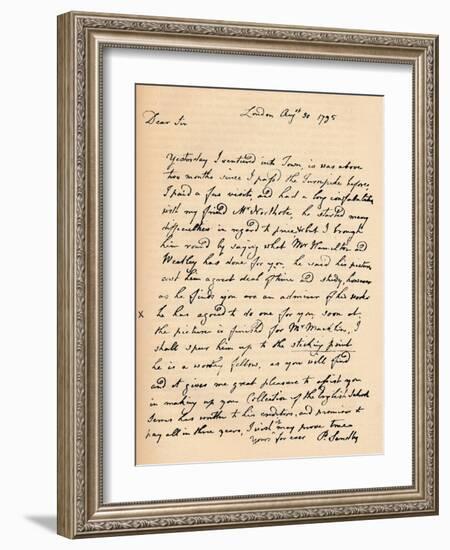 London Augst 30 1795
Dear Sir
Yesterday I ventured into Town, is was above
two months since I past the Turnpike before,
I paid a few visits and had a long confabulation
with my friend Mr Northcote, he started many
difficulties in regard to price but I brough
him round by saying what Mr Hamilton and
Weatley has done for you, he said his pictures
cost him a great deal of time and study, however
as he finds you are an admirer of his works
x he has agreed to do one for you, soon as
the picture is finishd for Mr Macklin, I
shall spur him up to the sticking point
he is a worthy fellow, as you will find
and it gives me great pleasure to assist you
in making up your Collection of the English School
has written to his creditors, and promises to
pay all in three years, I wish may prove true
Yours for ever P. Sandby